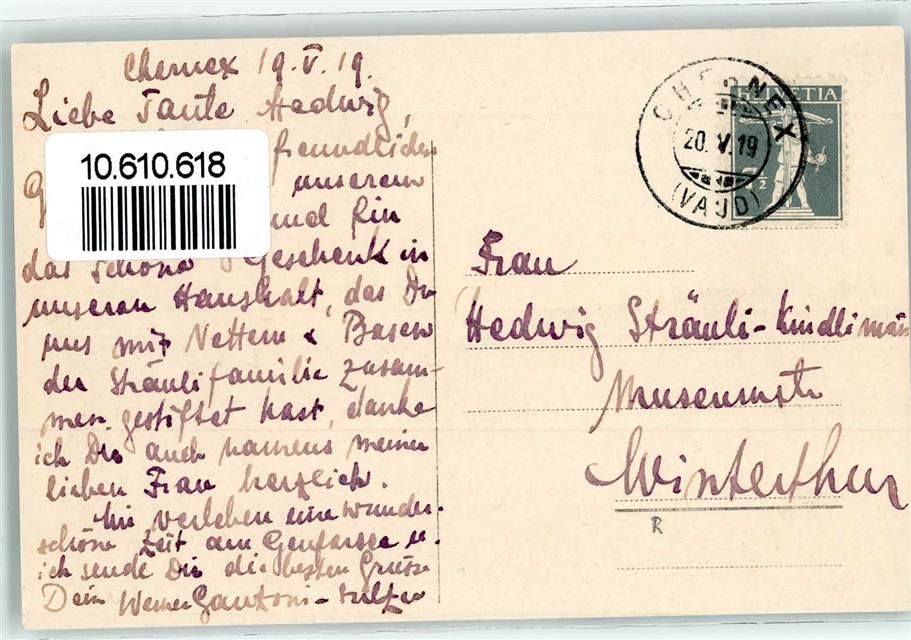 Chernex 19.V.19.
Liebe Tante Hedwig,
freundlichen
unserem
und für
das schöne Geschenk in
unseren Haushalt, das Du
uns mit Vettern & Basen
der Sträulifamilie zusam-
men gestiftet hast, danke
ich Dir auch namens meiner
lieben Frau herzlich.
Wir verleben eine wunder-
schöne Zeit am Genfersee u.
ich sende Dir die besten Grüsse
Dein Werner
10.610.618
CHERNEX
20.V.19
(VAUD)
HELVETIA
Frau
Hedwig Sträuli-Kindlimann
Museumstr
Winterthur
R